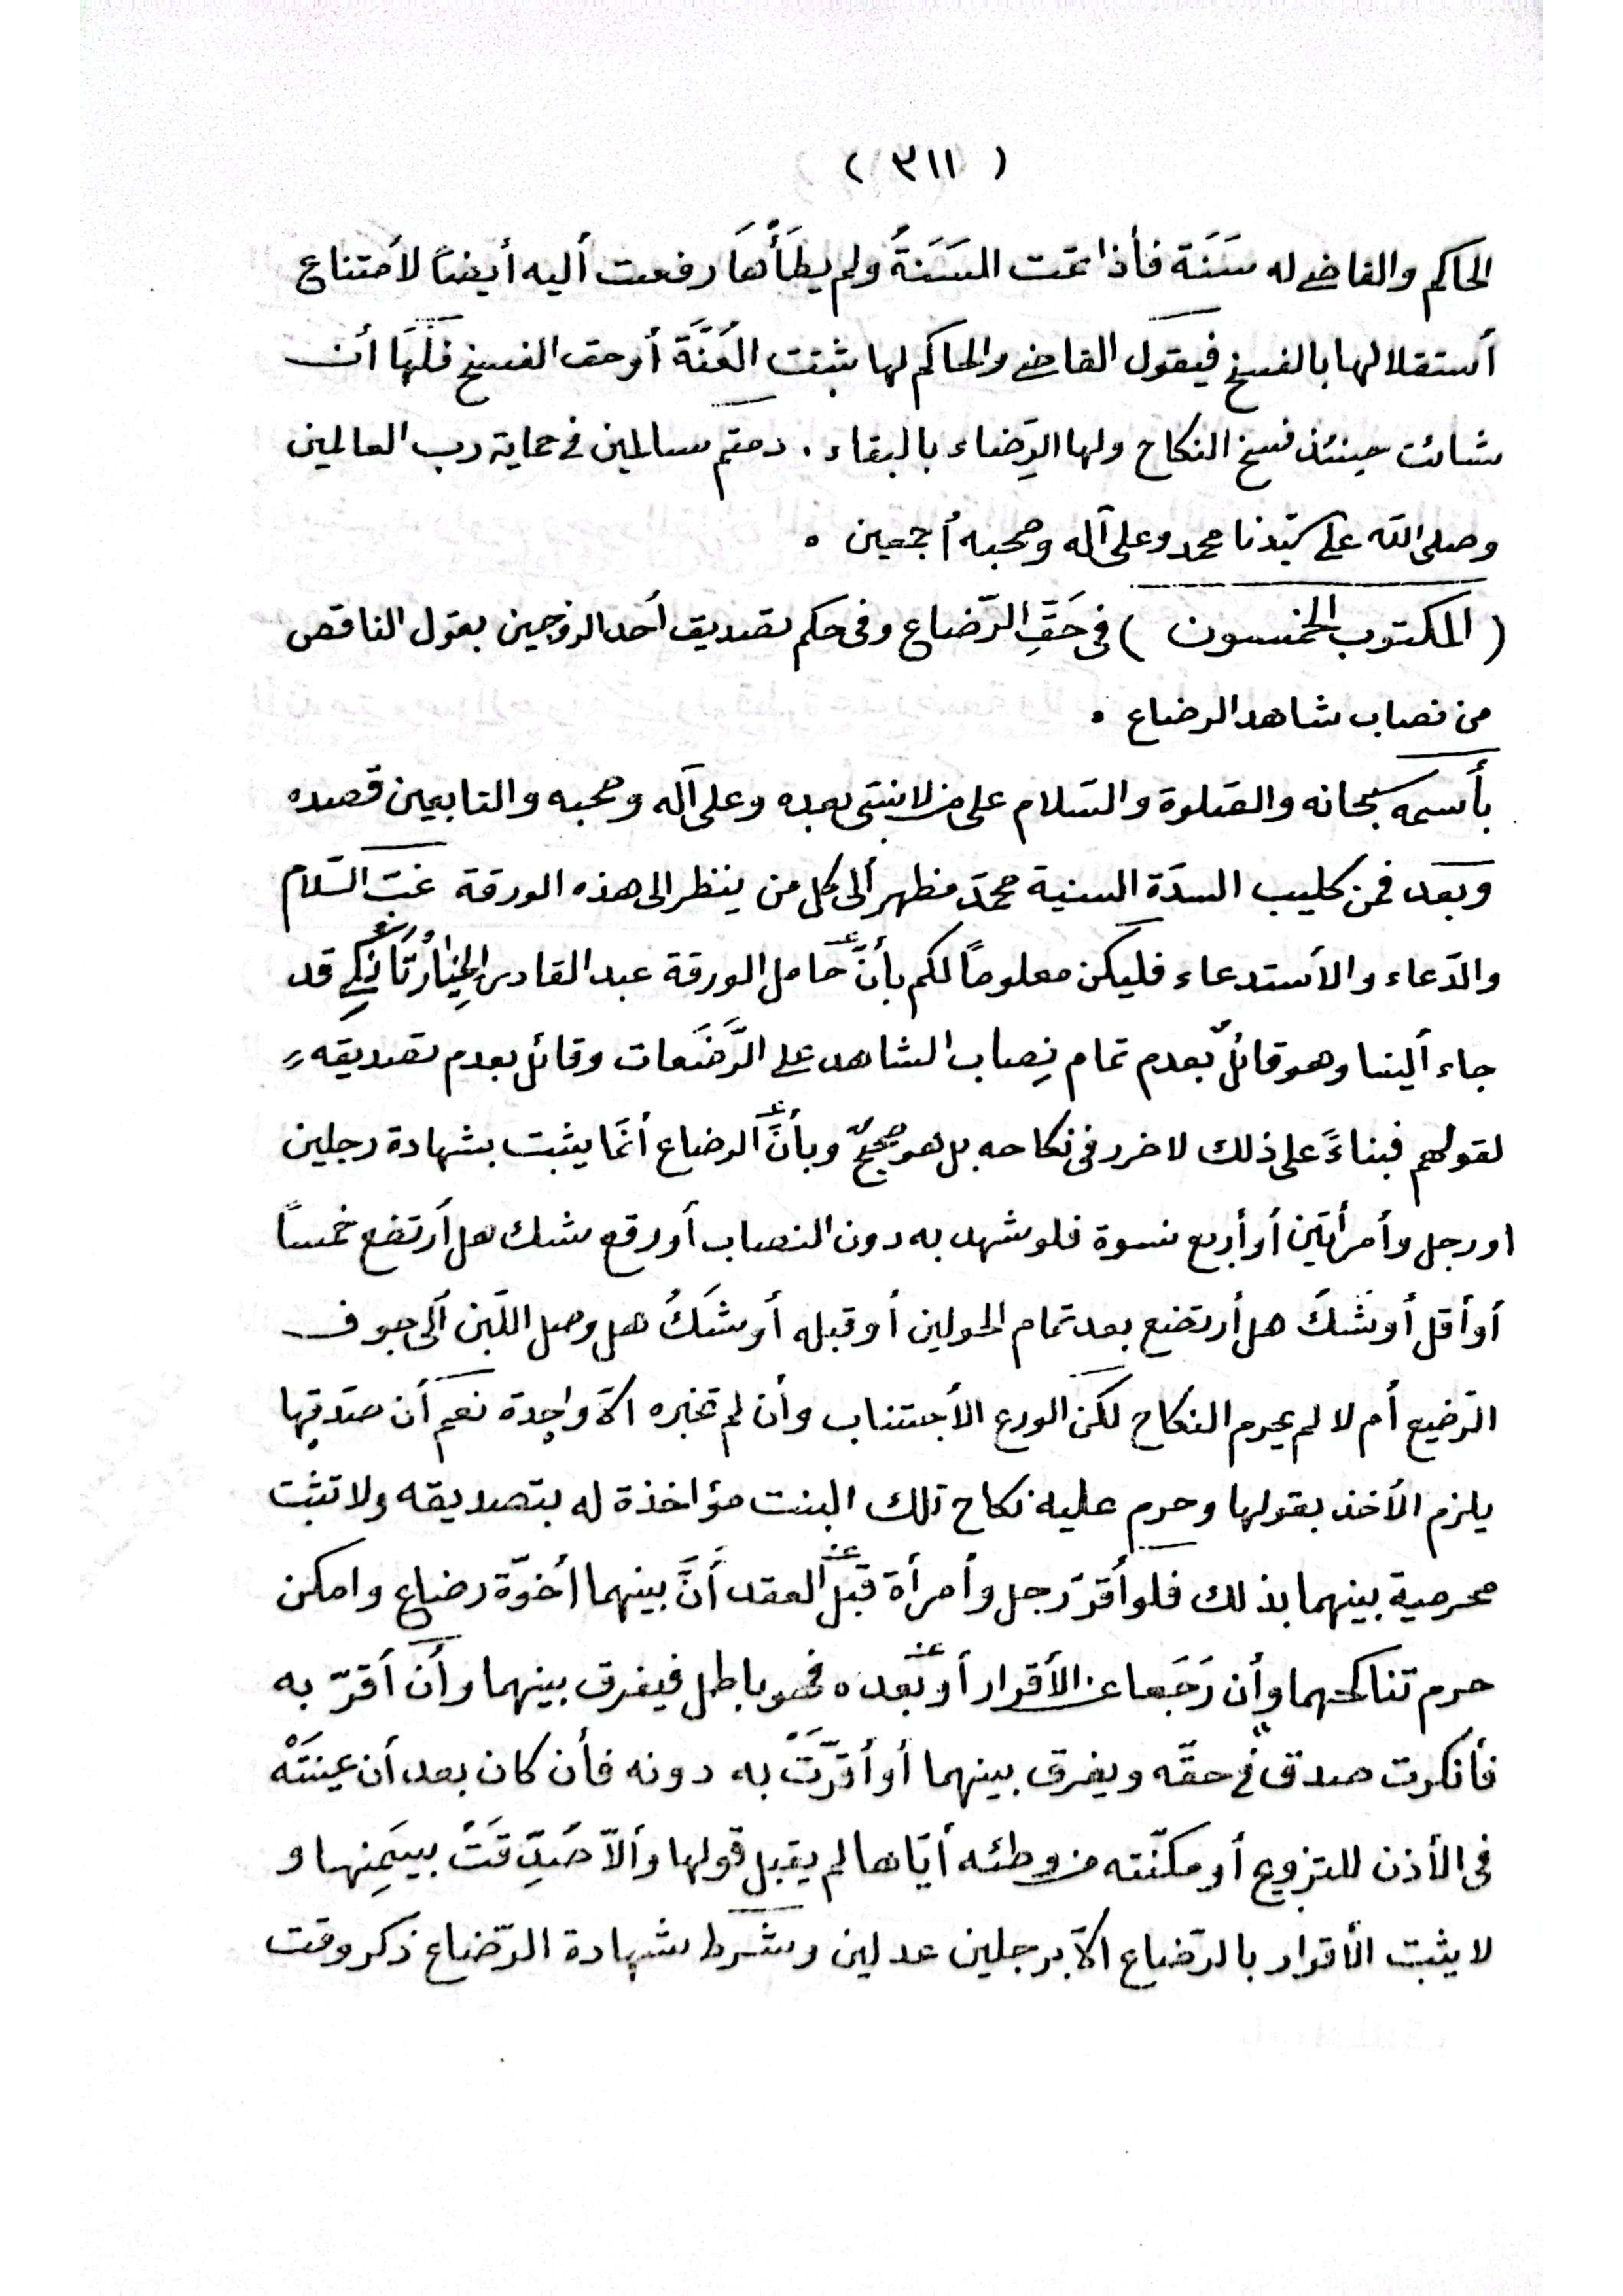 ( ٣١١ )
الحاكم والقاضى له سَنَة فأذا تمّت السَنَةُ ولم يطَأْهَا رفعت أليه أيضاً لأمتناع
أستقلالها بالفسخ فيقول القاضى والحاكم لها ثبتت العُنَّة أو حق الفسخ فَلَهَا أن
شائت حينئذ فسخ النكاح ولها الرِضاء بالبقاء . دمتم سالمين فى حماية رب العالمين
وصلى الله على سيّدنا محمد وعلى آله وصحبه أجمعين .
( المكتوب الخمسون ) فى حَقِّ الرّضاع وفى حكم تصديق أحد الزوجين بقول الناقص
من نصاب شاهد الرضاع .
بأسمه سبحانه والصّلوة والسّلام على من لا نبىّ بعده وعلى آله وصحبه والتابعين قصده
وبعد فمن كليب السدّة السنية محمّد مظهر ألى كل من ينظر الى هذه الورقة غبّ السّلام
والدّعاء والأستدعاء فليكن معلوماً لكم بأنّ حامل الورقة عبد القادر قد
جاء ألينا وهو قائلٌ بعدم تمام نِصاب الشاهد على الرَّضَعات وقائل بعدم تصديقه
لقولهم فبناءً على ذلك لا ضرر فى نكاحه بل هو صحيحٌ وبأنَّ الرضاع أنّما يثبت بشهادة رجلين
او رجل وأمرأتين أو أربع نسوة فلو شهد به دون النصاب أو وقع شك هل أرتضع خمساً
أو أقل أو شَكَّ هل أرتضع بعد تمام الحولين أو قبله أو شَكَّ هل وصل اللّبن ألى جوف
الرّضيع أم لا لم يحرم النكاح لكن الورع الأجتناب وأن لم تخبره الاّ واحِدة نعم أن صدّقها
يلزم الأخذ بقولها وحرم عليه نكاح تلك البنت مؤاخذة له بتصديقه ولا تثبت
محرمية بينهما بذلك فلو أقرّ رجل وأمرأة قبل العقد أنَّ بينهما أخوّة رضاع وامكن
حرم تناكحهما وأن رَجَعا عن الأقرار أو بَعده فهو باطل فيفرق بينهما وأن أقرّ به
فأنكرت صدق فى حقّه ويفرق بينهما أو أقرّتْ به دونه فأن كان بعد أن عينَتْه
فى الأذن للتزويج أو مكّنته من وطئه أيّاها لم يقبل قولها وألاّ صُدِّقَتْ بيمِينها و
لا يثبت الأقرار بالرّضاع الاّ برجلين عدلين وشرط شهادة الرّضاع ذكر وقت